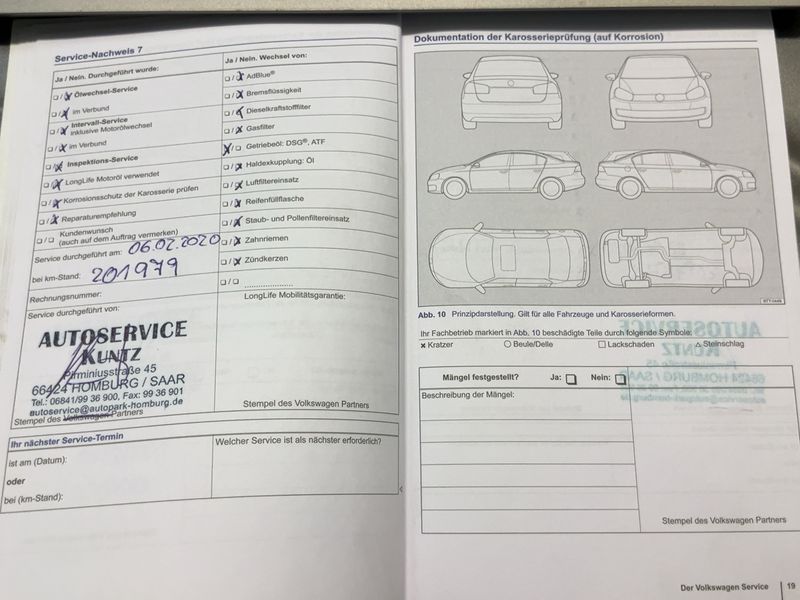 Service-Nachweis 7
Ja / Nein. Durchgeführt wurde:
Ölwechsel-Service
im Verbund
Intervall-Service
inklusive Motorölwechsel
im Verbund
Inspektions-Service
LongLife Motoröl verwendet
Korrosionsschutz der Karosserie prüfen
Reparaturempfehlung
Kundenwunsch
(auch auf dem Auftrag vermerken)
Service durchgeführt am: 06.02.2020
bei km-Stand: 201979
Rechnungsnummer:
Service durchgeführt von:
AUTOSERVICE
KUNTZ
Pirminiusstraße 45
66424 HOMBURG / SAAR
Tel.: 06841/99 36 900, Fax: 99 36 901
autoservice@autopark-homburg.de
Stempel des Volkswagen Partners
Ja / Nein. Wechsel von:
AdBlue®
Bremsflüssigkeit
Dieselkraftstofffilter
Gasfilter
Getriebeöl: DSG®, ATF
Haldexkupplung: Öl
Luftfiltereinsatz
Reifenfüllflasche
Staub- und Pollenfiltereinsatz
Zahnriemen
Zündkerzen
LongLife Mobilitätsgarantie:
Stempel des Volkswagen Partners
Ihr nächster Service-Termin
ist am (Datum):
oder
bei (km-Stand):
Welcher Service ist als nächster erforderlich?
Dokumentation der Karosserieprüfung (auf Korrosion)
Abb. 10 Prinzipdarstellung. Gilt für alle Fahrzeuge und Karosserieformen.
Ihr Fachbetrieb markiert in Abb. 10 beschädigte Teile durch folgende Symbole:
Kratzer Beule/Delle Lackschaden Steinschlag
Mängel festgestellt? Ja: Nein:
Beschreibung der Mängel:
Stempel des Volkswagen Partners
Der Volkswagen Service 19